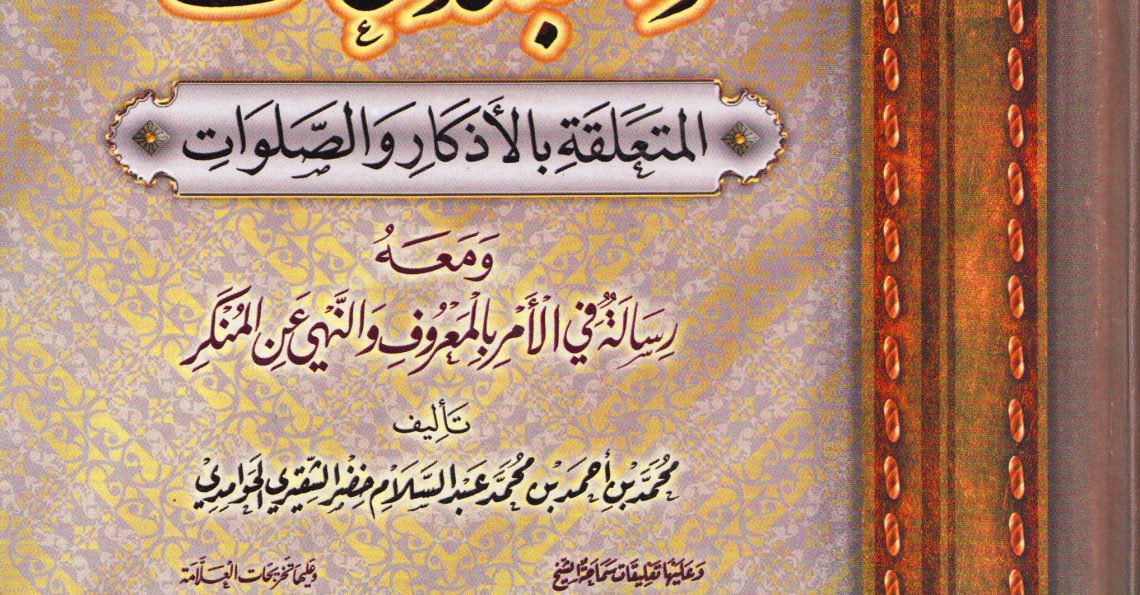 المتعَلقة بالأذكار وَالصَّلوَاتِ
وَمَعَهُ
رِسَالَةٌ فِي الأَمْرِ بِالْمَعْرُوف وَالنَّهْي عَنِ المُنْكَرِ
تَأليف
محمَّد بْن أحمَد بْن محمَّد عَبْد السَّلَام خضْر الشّقيْري الحَوَامِدِيْ
وَعَليْهَا تعْليقَات سَمَاحَة الشيْخ
وعليهَا تخريجَات العَلَّامَة